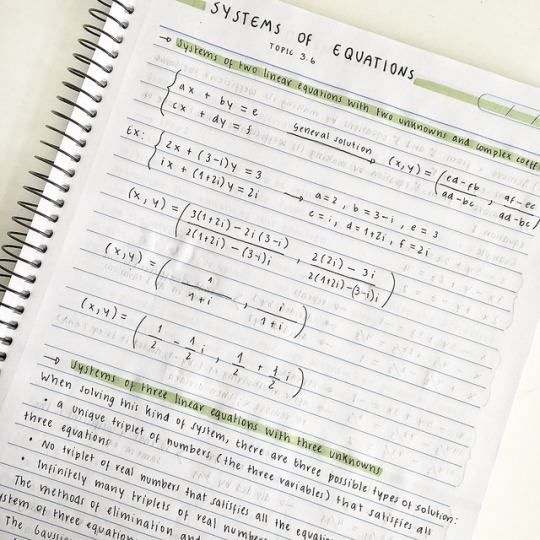 SYSTEMS OF EQUATIONS
TOPIC 3.6
→ Systems of two linear equations with two unknowns and complex coeff
{ ax + by = e
cx + dy = f
General solution →
(x, y) = ( ed-fb / ad-bc , af-ec / ad-bc )
Ex: { 2x + (3-i)y = 3
ix + (1+2i)y = 2i
→ a=2, b=3-i, e=3
c=i, d=1+2i, f=2i
(x, y) = ( 3(1+2i)-2i(3-i) / 2(1+2i)-(3-i)i , 2(2i)-3i / 2(1+2i)-(3-i)i )
(x,y) = ( 1 / 1+i , i / 1+i )
(x,y) = ( 1/2 - 1/2 i , 1/2 + 1/2 i )
→ Systems of three linear equations with three unknowns
When solving this kind of system, there are bhree possible types of solution:
• a unique triplet of numbers (the three variables) that satisfies all
three equations
• No triplet of real numbers that satisfies all the equation
• Infinitely many triplets of real numbers
The methods of elimination and
stem of three equations
The Gaussi